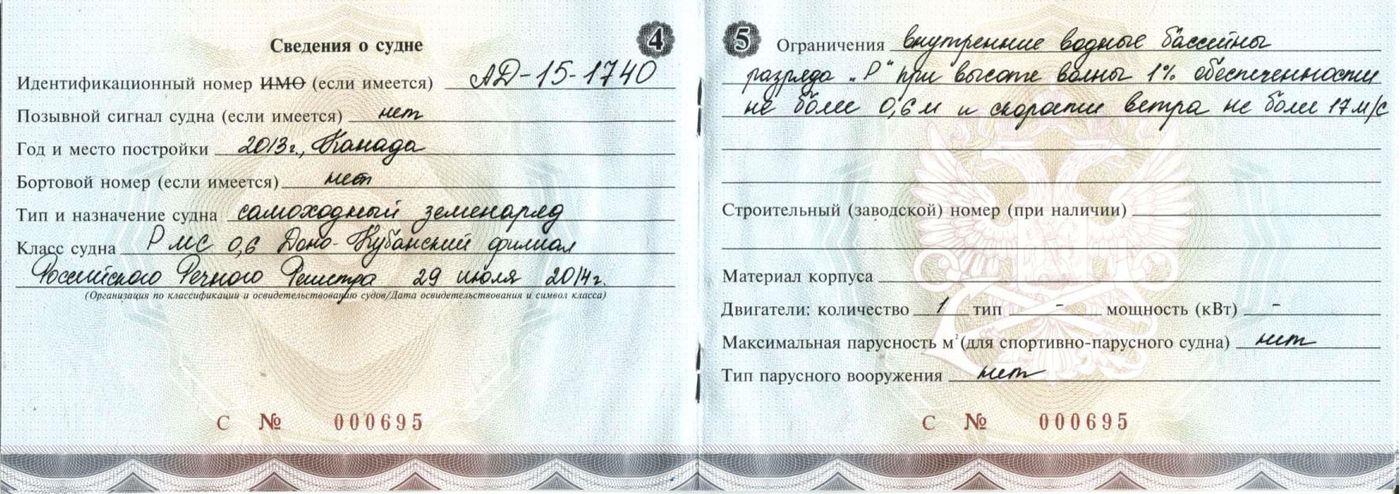 4
Сведения о судне
Идентификационный номер ИМО (если имеется) АД-15-1740
Позывной сигнал судна (если имеется) нет
Год и место постройки 2013г., Канада
Бортовой номер (если имеется) нет
Тип и назначение судна самоходный земснаряд
Класс судна Р МС 0,6 Доно-Кубанский филиал
Российского Речного Регистра 29 июля 2014г.
(Организация по классификации и освидетельствованию судов/Дата освидетельствования и символ класса)
С № 000695
5
Ограничения внутренние водные бассейны
разряда „Р" при высоте волны 1% обеспеченности
не более 0,6м и скорости ветра не более 17м/с
Строительный (заводской) номер (при наличии)
Материал корпуса
Двигатели: количество 1 тип - мощность (кВт) -
Максимальная парусность м² (для спортивно-парусного судна) нет
Тип парусного вооружения нет
С № 000695